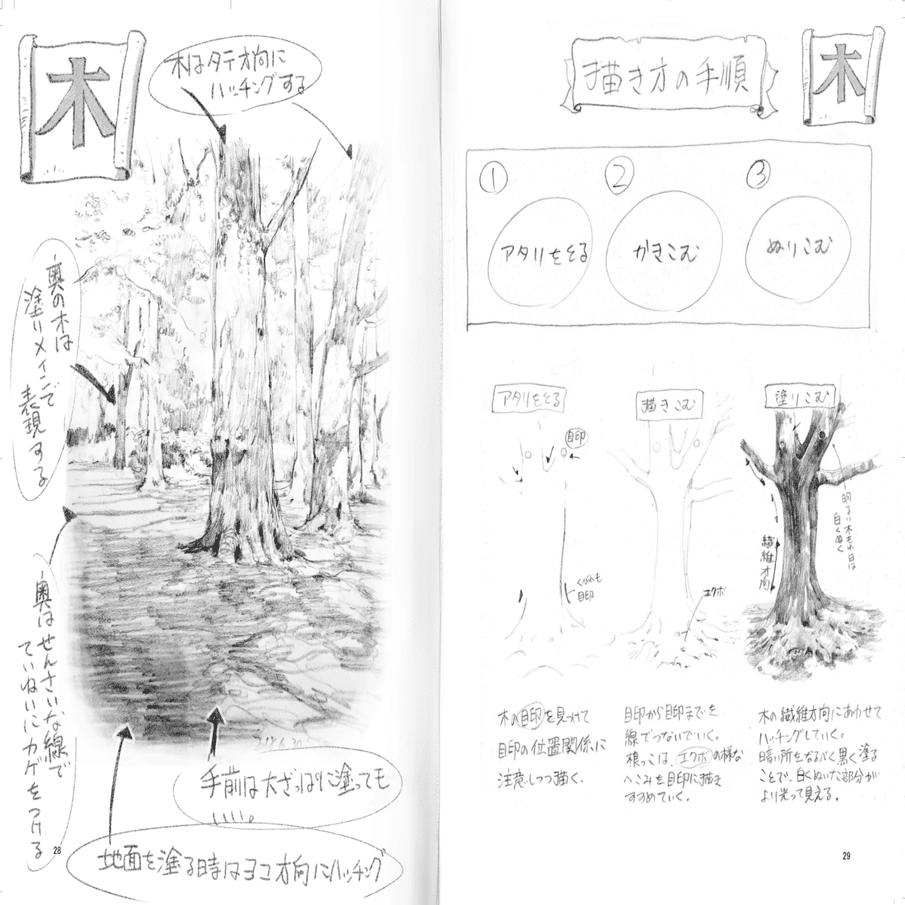 木
木はタテ方向に
ハッチングする
奥の木は
塗りメインで
表現する
奥はせんさいな線で
ていねいにカゲをつける
手前は大ざっぱに塗っても
いい。
地面を塗る時はヨコ方向にハッチング
28
描き方の手順
木
①
アタリをとる
②
かきこむ
③
ぬりこむ
アタリをとる
目印
くびれも
目印
描きこむ
エクボ
塗りこむ
明るい木もれ日は
白くぬく
繊維方向
木の目印を見つけて
目印の位置関係に
注意しつつ描く。
目印から目印までを
線でつないでいく。
根っこは、エクボの様な
へこみを目印に描き
すすめていく。
木の繊維方向にあわせて
ハッチングしていく。
暗い所をなるべく黒く塗る
ことで、白くぬいた部分が
より光って見える。
29